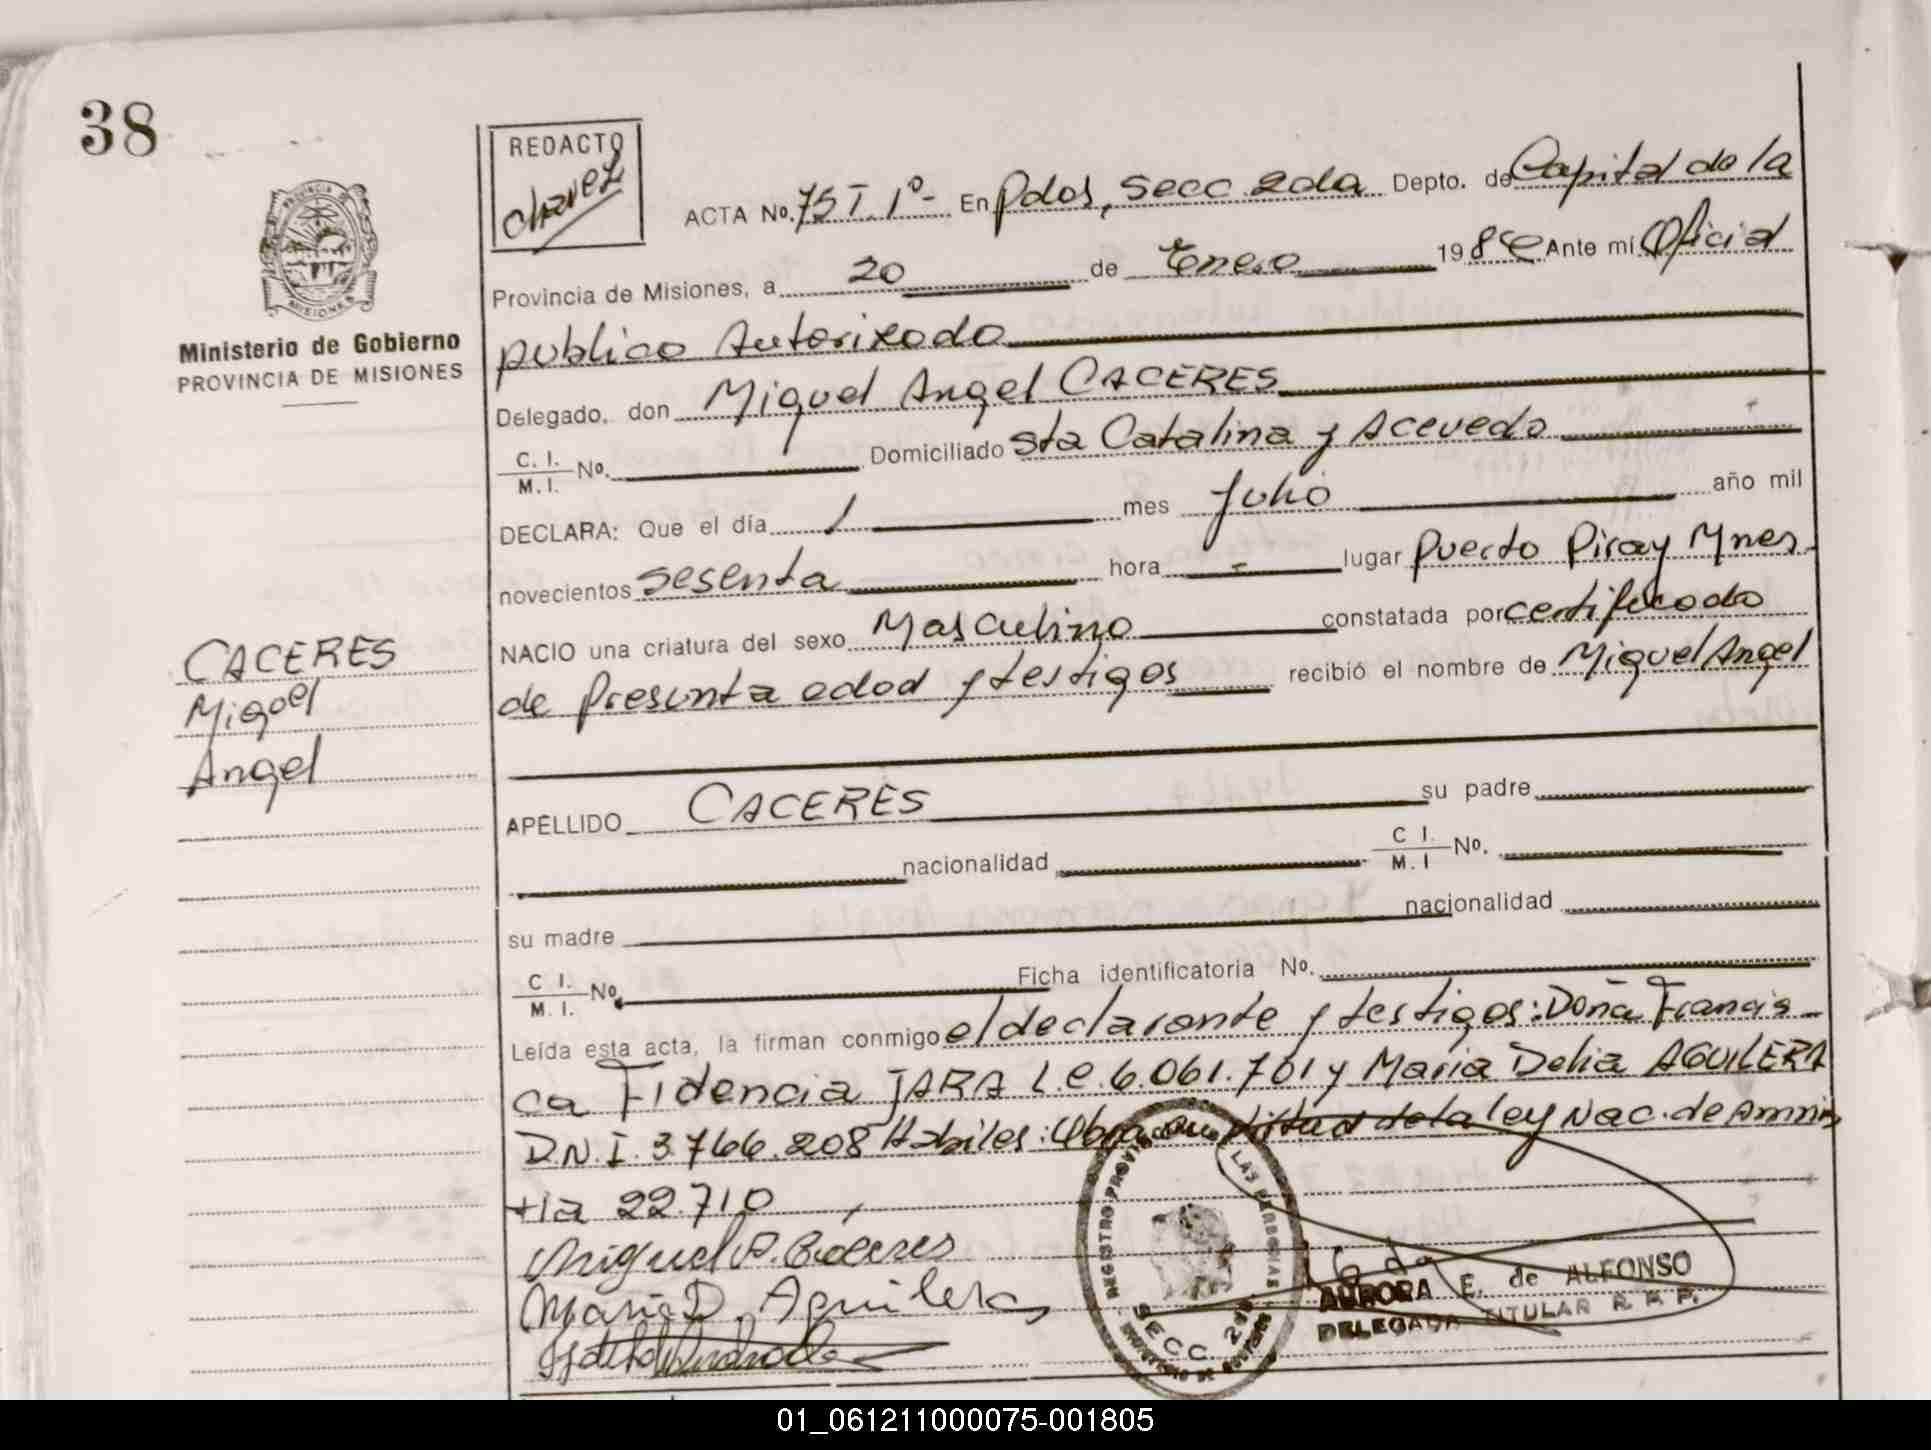 38
REDACTO
chavez
PROVINCIA DE
MISIONES
Ministerio de Gobierno
PROVINCIA DE MISIONES
ACTA No. 75 T. 1º- En Pdos, secc 2da Depto. de Capital de la
Provincia de Misiones, a 20 de Enero 198 Ante mi Oficial
publico Autorizado
Delegado, don Miguel Angel CACERES
C. I. / M. I. No. Domiciliado Sta Catalina y Acevedo
DECLARA: Que el día 1 mes Julio año mil
novecientos sesenta hora - lugar Puerto Piray Mnes.
NACIO una criatura del sexo Masculino constatada por certificado
de Presunta edad y testigos recibió el nombre de Miguel Angel
CACERES
Miguel
Angel
APELLIDO CACERES su padre
nacionalidad C I. / M. I No.
su madre nacionalidad
C I. / M. I. No. Ficha identificatoria No.
Leída esta acta, la firman conmigo el declarante y testigos: Doña Francis
ca Fidencia JARA L.C. 6.061.701 y Maria Delia AGUILERA
D.N.I. 3.766.208 Habiles: Obra en virtud de la ley Nac. de Amnis
tia 22.710
Miguel A. Caceres
Maria D. Aguilera
REGISTRO PROVINCIAL DE LAS PERSONAS
SECC. 2da
AURORA E. de ALFONSO
DELEGADA TITULAR R. P. P.
01_061211000075-001805